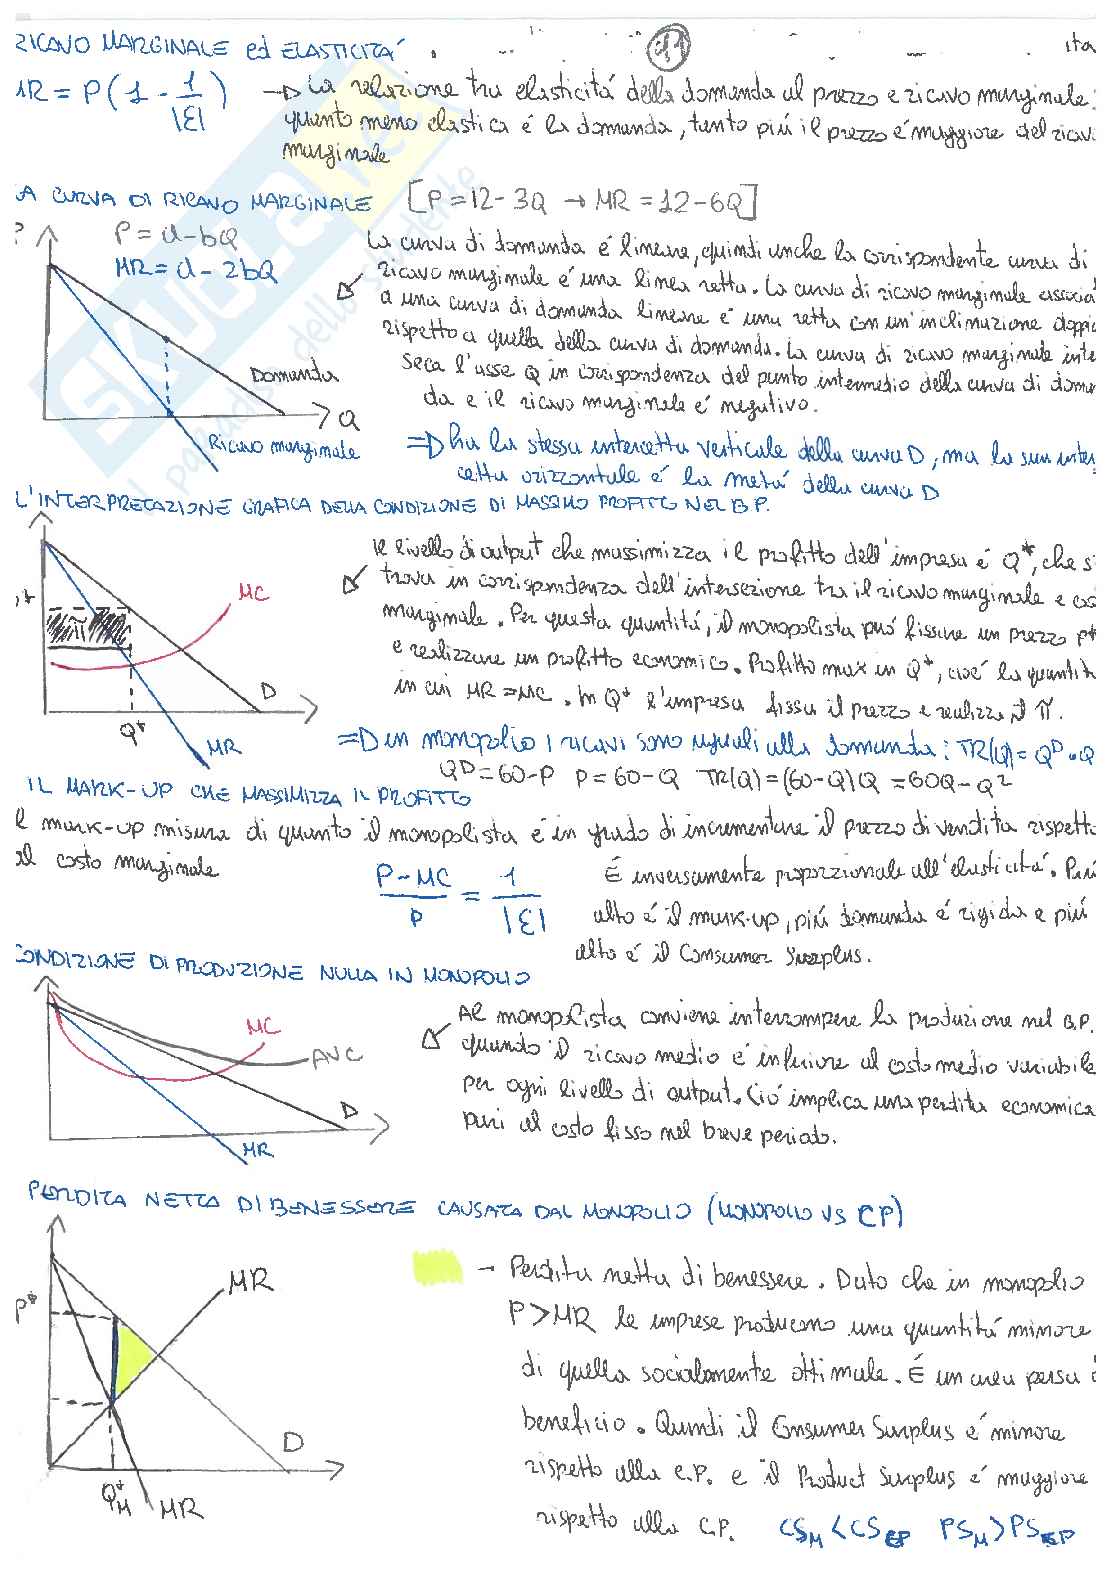 RICAVO MARGINALE ed ELASTICITÁ
41
ita
MR = P(1 - 1/|E|)
→ La relazione tra elasticitá della domanda al prezzo e ricavo marginale:
quanto meno elastica é la domanda, tanto piú il prezzo é maggiore del ricav
marginale
A CURVA DI RICAVO MARGINALE [P=12-3Q → MR=12-6Q]
P
P=a-bQ
MR=a-2bQ
La curva di domanda é lineare, quindi anche la corrispondente curva di
ricavo marginale é una linea retta. La curva di ricavo marginale associa
a una curva di domanda lineare é una retta con un'inclinazione doppia
rispetto a quella della curva di domanda. La curva di ricavo marginale inte
seca l'asse Q in corrispondenza del punto intermedio della curva di doman
da e il ricavo marginale é negativo.
Domanda
Q
Ricavo marginale
⇒ ha la stessa intercetta verticale della curva D, ma la sua inter
cetta orizzontale é la metá della curva D
L'INTERPRETAZIONE GRAFICA DELLA CONDIZIONE DI MASSIMO PROFITTO NEL B.P.
Il livello di output che massimizza il profitto dell'impresa é Q*, che si
trova in corrispondenza dell'intersezione tra il ricavo marginale e cos
marginale. Per questa quantitá, il monopolista puó fissare un prezzo P*
e realizzare un profitto economico. Profitto max in Q*, cioé la quantitá
in cui MR=MC. In Q* l'impresa fissa il prezzo e realizza il π.
MC
D
Q*
MR
⇒ in monopolio i ricavi sono uguali alla domanda: TR(Q)=Qᴰ•Q
Qᴰ=60-P P=60-Q TR(Q)=(60-Q)Q =60Q-Q²
IL MARK-UP CHE MASSIMIZZA IL PROFITTO
Il mark-up misura di quanto il monopolista é in grado di incrementare il prezzo di vendita rispetto
al costo marginale
P-MC/P = 1/|E|
É inversamente proporzionale all'elasticitá. Piú
alto é il mark-up, piú domanda é rigida e piú
alto é il Consumer Surplus.
CONDIZIONE DI PRODUZIONE NULLA IN MONOPOLIO
MC
AVC
D
MR
Al monopolista conviene interrompere la produzione nel B.P.
quando il ricavo medio é inferiore al costo medio variabile
per ogni livello di output. Ció implica una perdita economica
pari al costo fisso nel breve periodo.
PERDITA NETTA DI BENESSERE CAUSATA DAL MONOPOLIO (MONOPOLIO VS CP)
P*
MR
D
Q*M
MR
→ Perdita netta di benessere. Dato che in monopolio
P>MR le imprese producono una quantitá minore
di quella socialmente ottimale. É un'area persa di
beneficio. Quindi il Consumer Surplus é minore
rispetto alla C.P. e il Product Surplus é maggiore
rispetto alla C.P. CSM<CSCP PSM>PSCP
SKUOLA.net
il paradiso dello studente